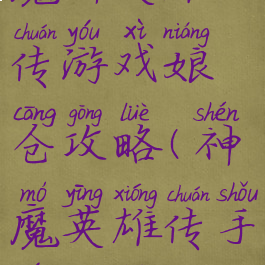 chuán yóu xì niáng
传游戏娘
cāng gōng lüè shén
仓攻略(神
mó yīng xióng chuán shǒu
魔英雄传手